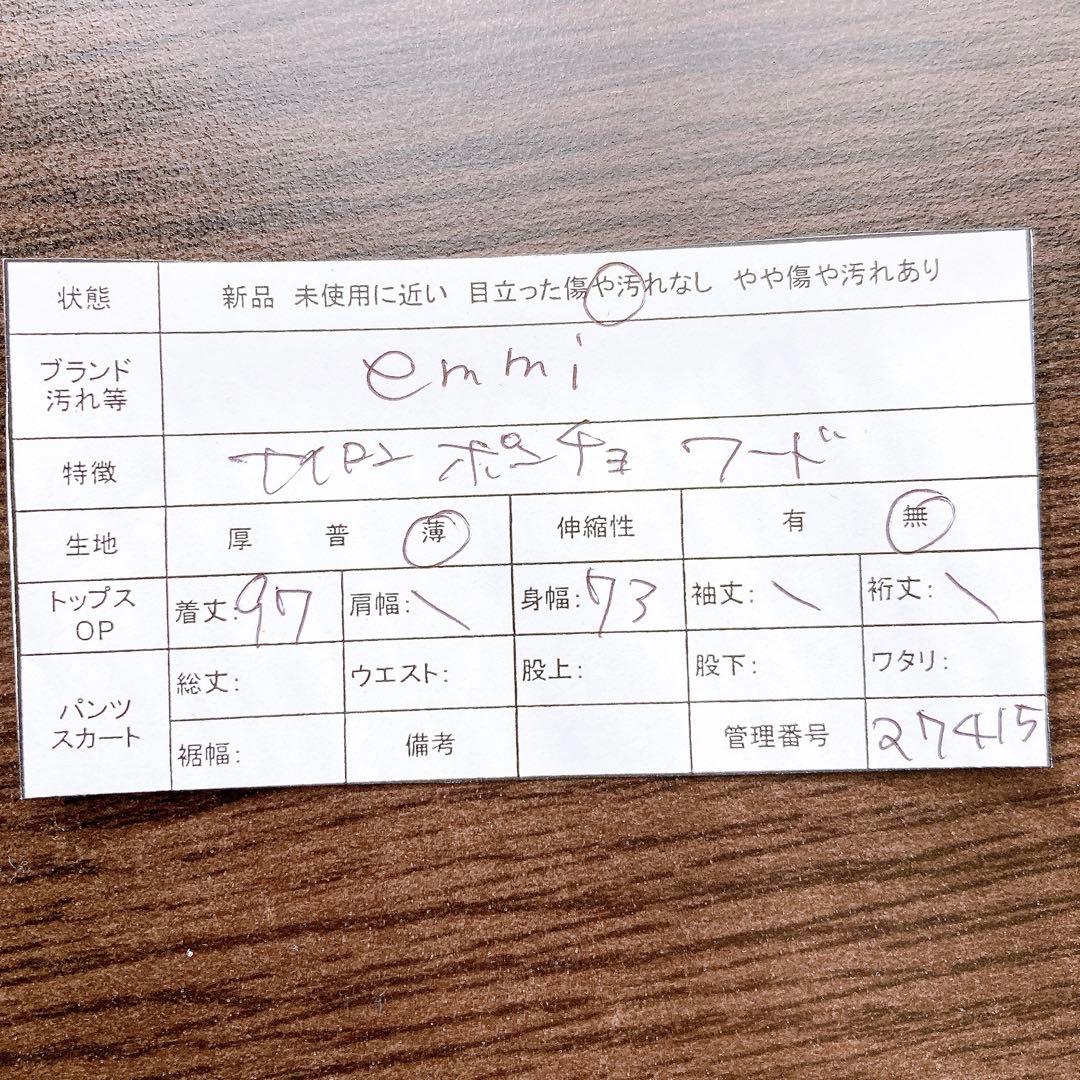 状態 新品 未使用に近い 目立った傷や汚れなし やや傷や汚れあり
ブランド
汚れ等
emmi
特徴 ポンチョ フード
生地 厚 普 薄 伸縮性 有 無
トップス
OP
着丈:97 肩幅:\ 身幅:73 袖丈:\ 裄丈:\
パンツ
スカート
総丈: ウエスト: 股上: 股下: ワタリ:
裾幅: 備考 管理番号 27415